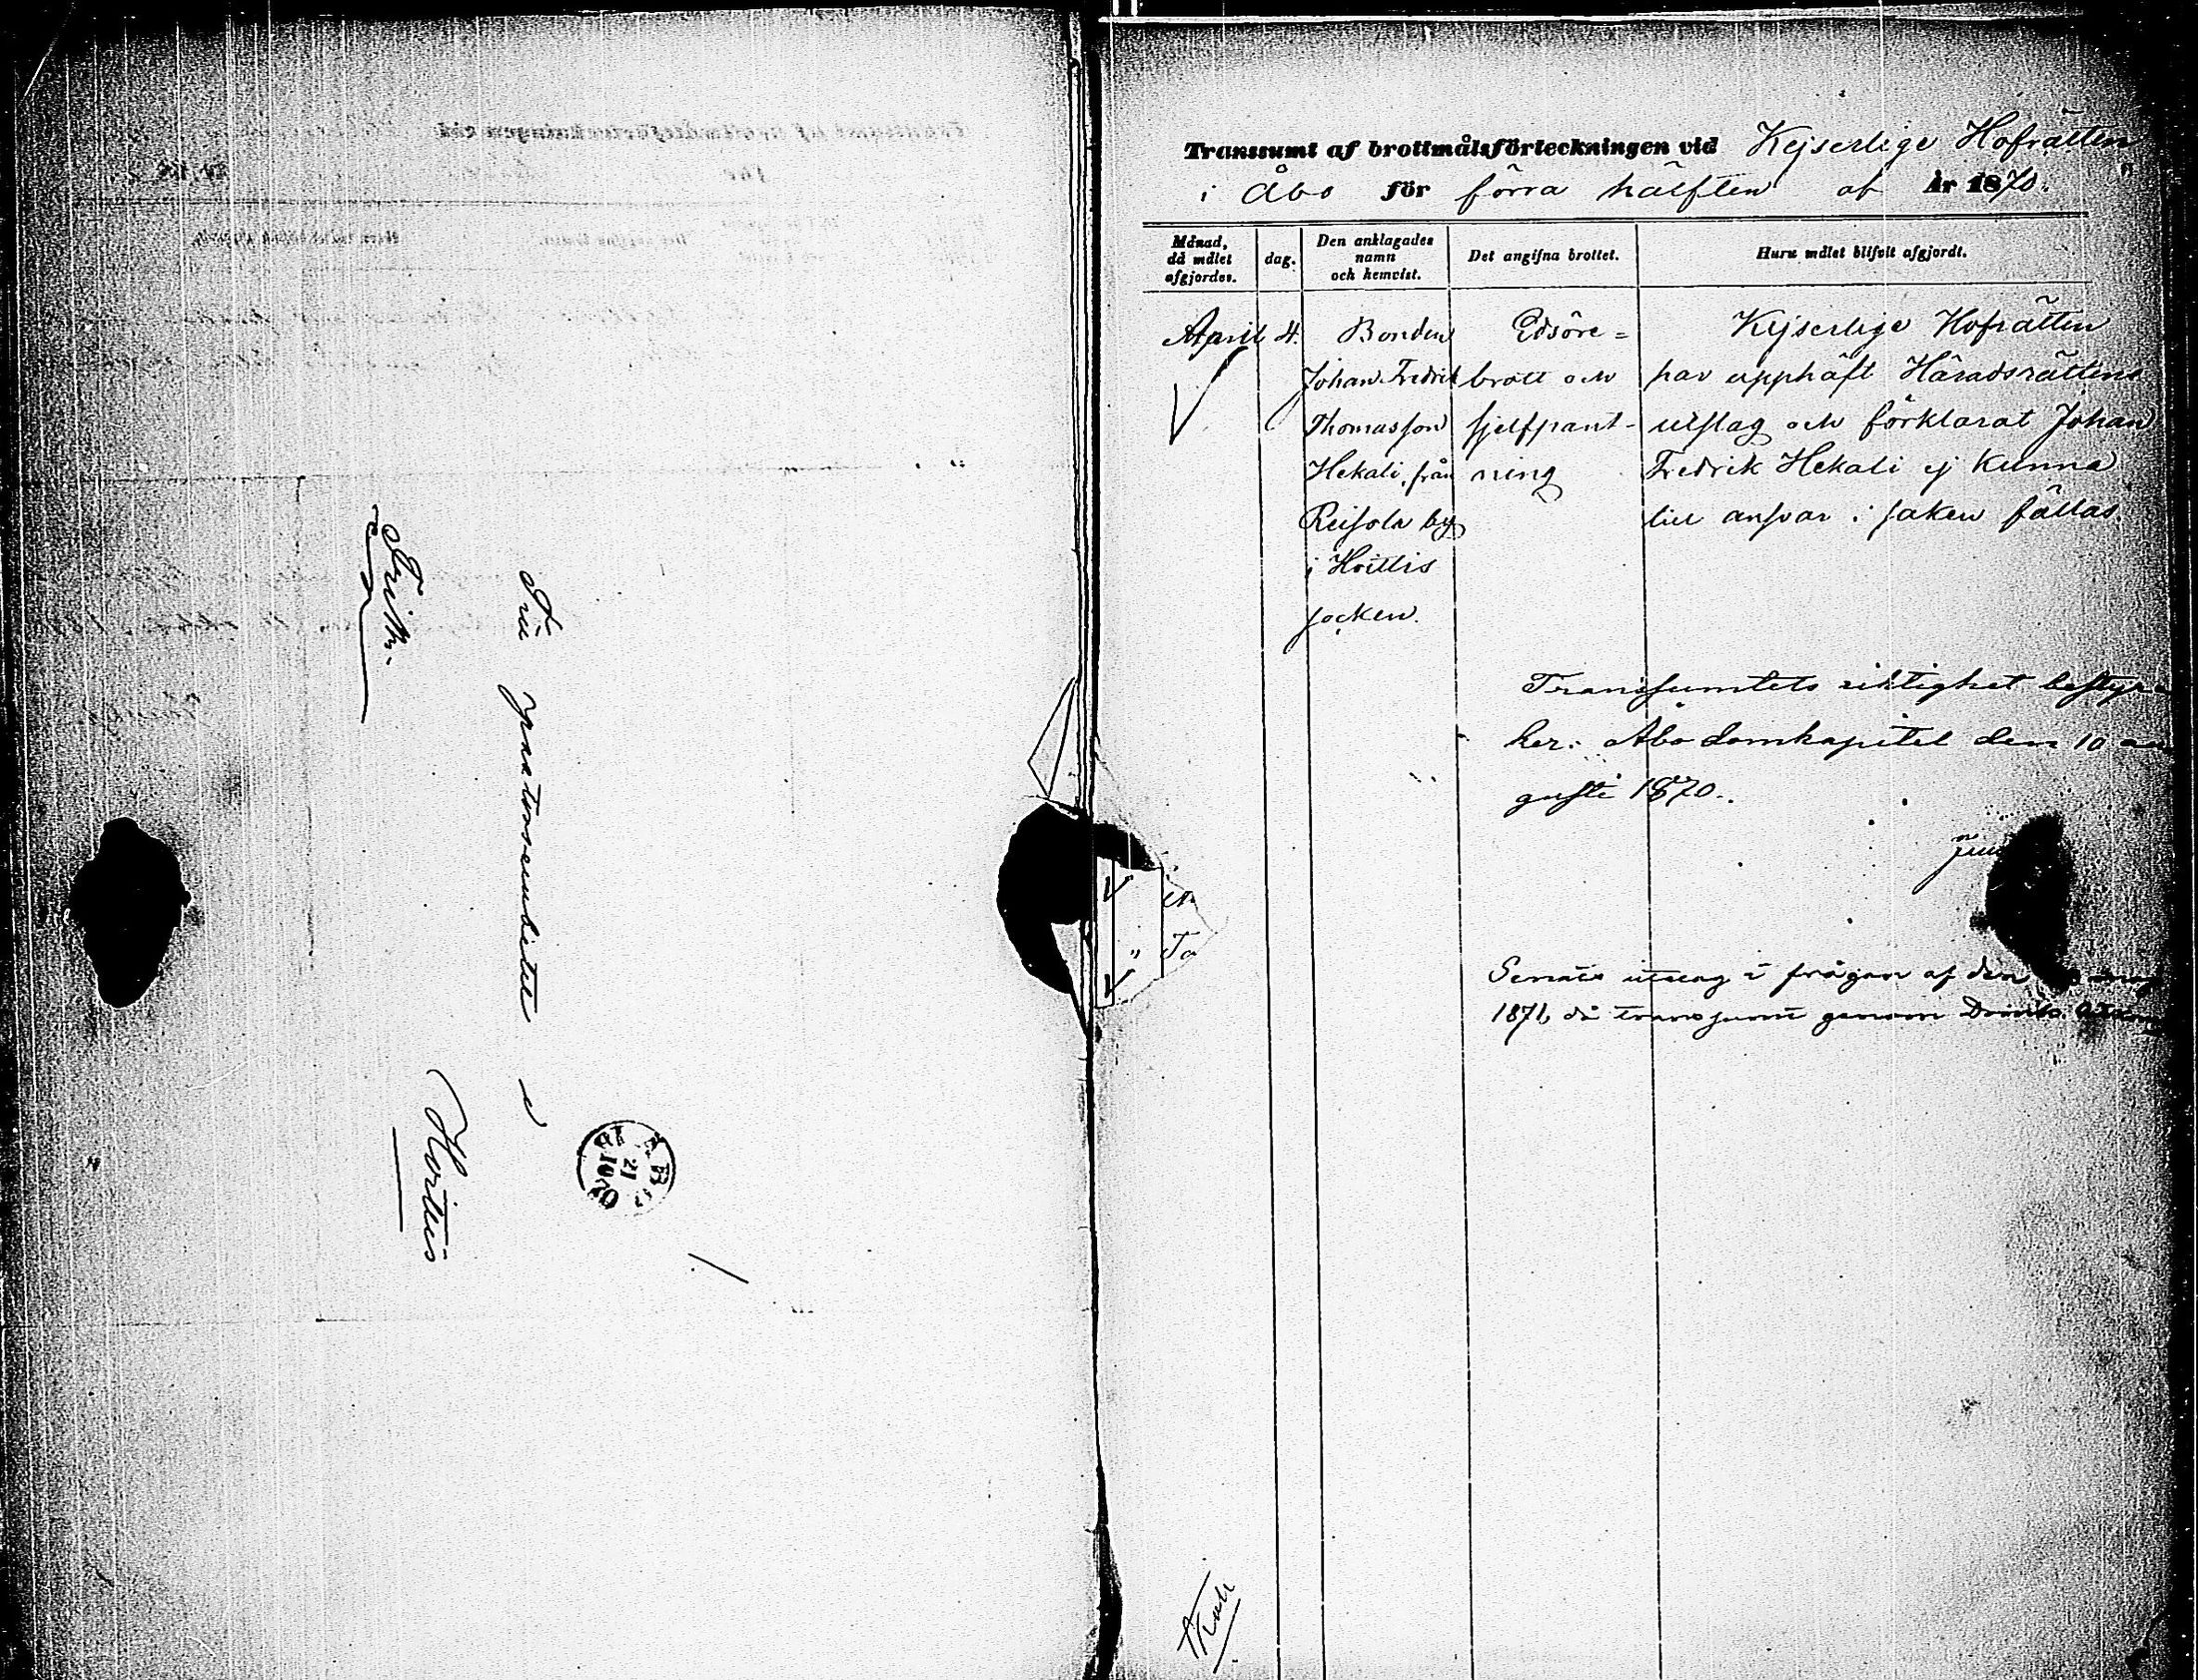 Fribr.
Till pastorsembetet i
Hvittis
ÅBO
21
10
Transsumt af brottmålsförteckningen vid Kejserlige Hofrätten
i Åbo för förra hälften af År 1870.
Månad, då målet afgjordes.
dag.
Den anklagades namn och hemvist.
Det angifna brottet.
Huru målet blifvit afgjordt.
April 4. Bonden Edsöre= Kejserlige Hofrätten
Johan Fredrik brott och har upphäft Häradsrättens
Thomasson sjelfpant- utslag och förklarat Johan
Hekali, från ning Fredrik Hekali ej kunna
Reisola by till ansvar i saken fällas.
i Hvittis
socken.
Transsumtets riktighet bestyr
ker: Åbo domkapitel den 10 au
gusti 1870.
Senats utslag i frågan af den
1871, då transsumt genom Domk.